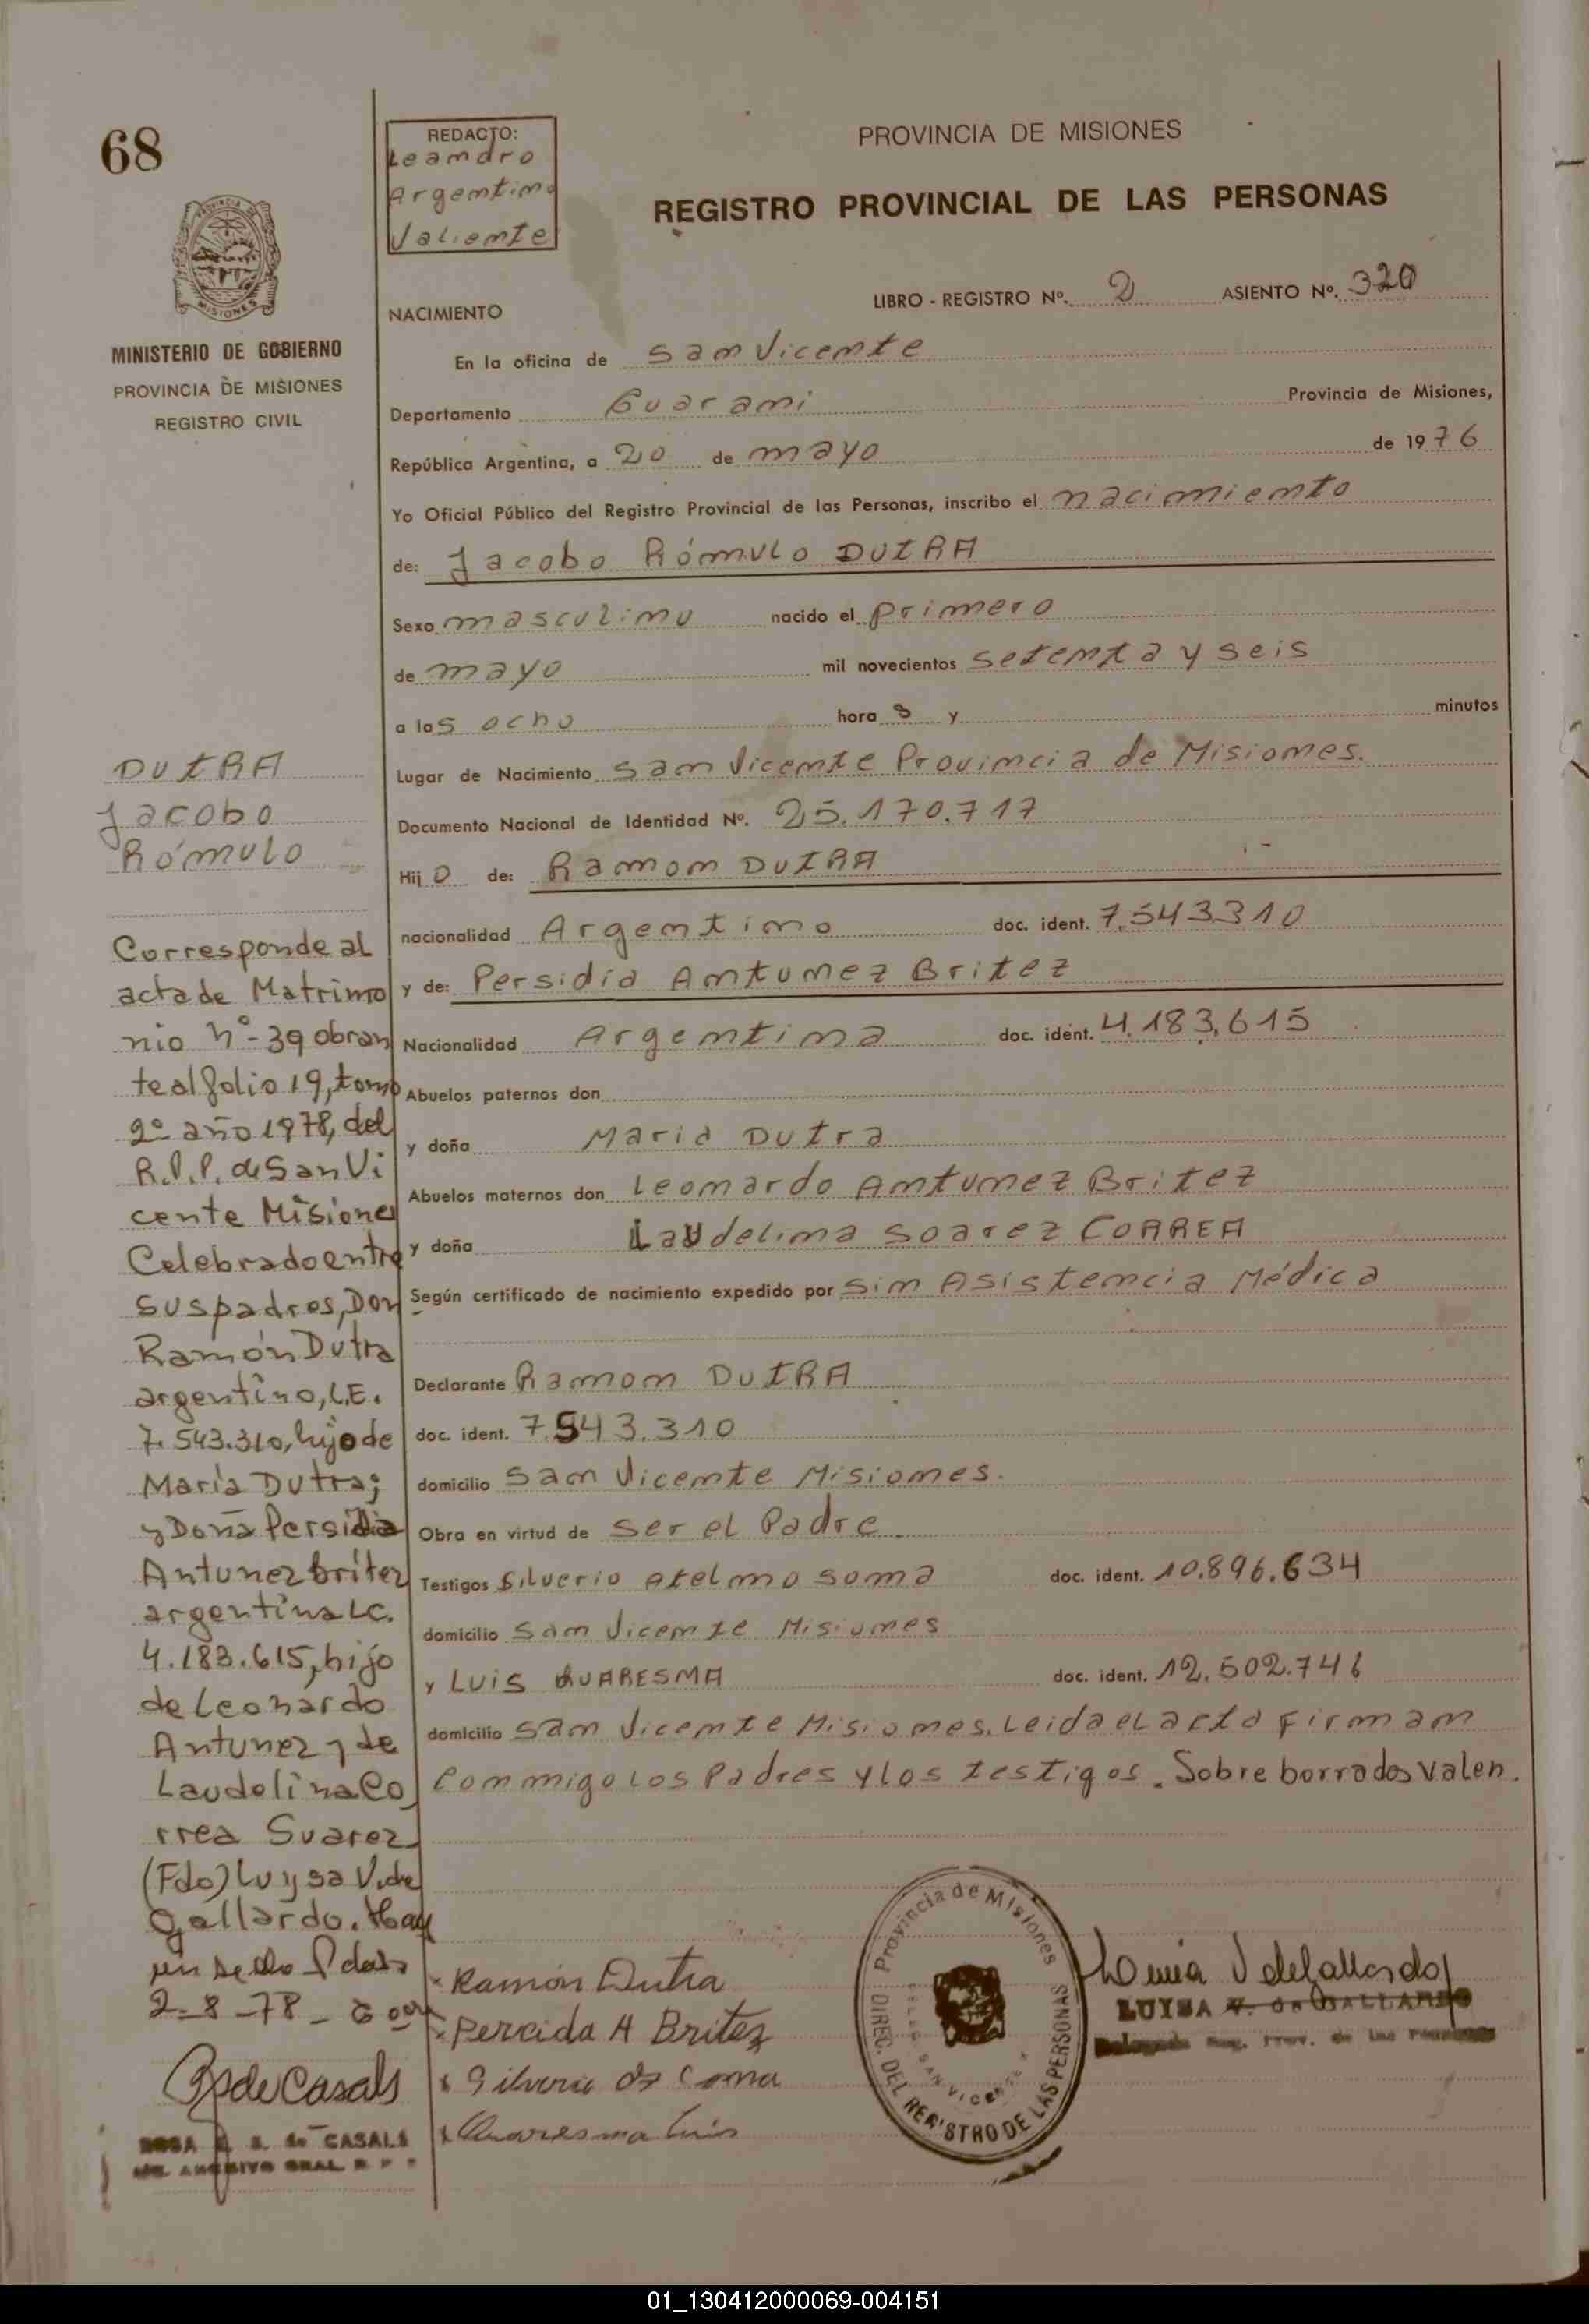 68
REDACTO:
Leandro
Argentino
Valiente
PROVINCIA DE MISIONES
REGISTRO PROVINCIAL DE LAS PERSONAS
PROVINCIA DE
MISIONES
MINISTERIO DE GOBIERNO
PROVINCIA DE MISIONES
REGISTRO CIVIL
LIBRO - REGISTRO Nº. 2 ASIENTO Nº. 320
NACIMIENTO
En la oficina de San Vicente
Departamento Guarani Provincia de Misiones,
República Argentina, a 20 de mayo de 1976
Yo Oficial Público del Registro Provincial de las Personas, inscribo el nacimiento
de: Jacobo Rómulo DUTRA
Sexo masculino nacido el primero
de mayo mil novecientos setenta y seis
a las ocho hora s y minutos
Lugar de Nacimiento San Vicente Provincia de Misiones.
Documento Nacional de Identidad Nº. 25.170.717
Hij o de: Ramon DUTRA
nacionalidad Argentino doc. ident. 7.543310
y de: Persidia Antunez Britez
Nacionalidad Argentina doc. ident. 4.183.615
Abuelos paternos don
y doña Maria Dutra
Abuelos maternos don Leonardo Antunez Britez
y doña Laudelina Soarez CORREA
Según certificado de nacimiento expedido por Sin Asistencia Médica
Declarante Ramon DUTRA
doc. ident. 7.543.310
domicilio San Vicente Misiones.
Obra en virtud de ser el Padre.
Testigos Silverio Atelmo Soma doc. ident. 10.896.634
domicilio San Vicente Misiones
y Luis QUARESMA doc. ident. 12.502.746
domicilio San Vicente Misiones. Leida el acta Firman
Conmigo Los Padres y los testigos. Sobre borrados valen.
DUTRA
Jacobo
Rómulo
Corresponde al
acta de Matrimo
nio nº-39 obran
te al folio 19, tomo
2º año 1978, del
R.P.P. de San Vi
cente Misiones
Celebrado entre
sus padres, Don
Ramón Dutra
argentino, L.E.
7.543.310, hijo de
María Dutra;
y Doña Persidia
Antunez Britez
argentina LC.
4.183.615, hijo
de Leonardo
Antunez y de
Laudelina Co
rrea Suarez
(Fdo) Luysa V. de
Gallardo. Hay
un sello
2-8-78-
Rs de Casals
ROSA S. de CASALS
ARCHIVO GRAL R P P
x Ramón Dutra
x Percida A Britez
x Silverio da Soma
x Quaresma Luis
Provincia de Misiones
DIREC. DEL REGISTRO DE LAS PERSONAS
SAN VICENTE
Luisa V de Gallardo
LUISA V. de GALLARDO
Delegada Reg. Prov. de las Personas
01_130412000069-004151